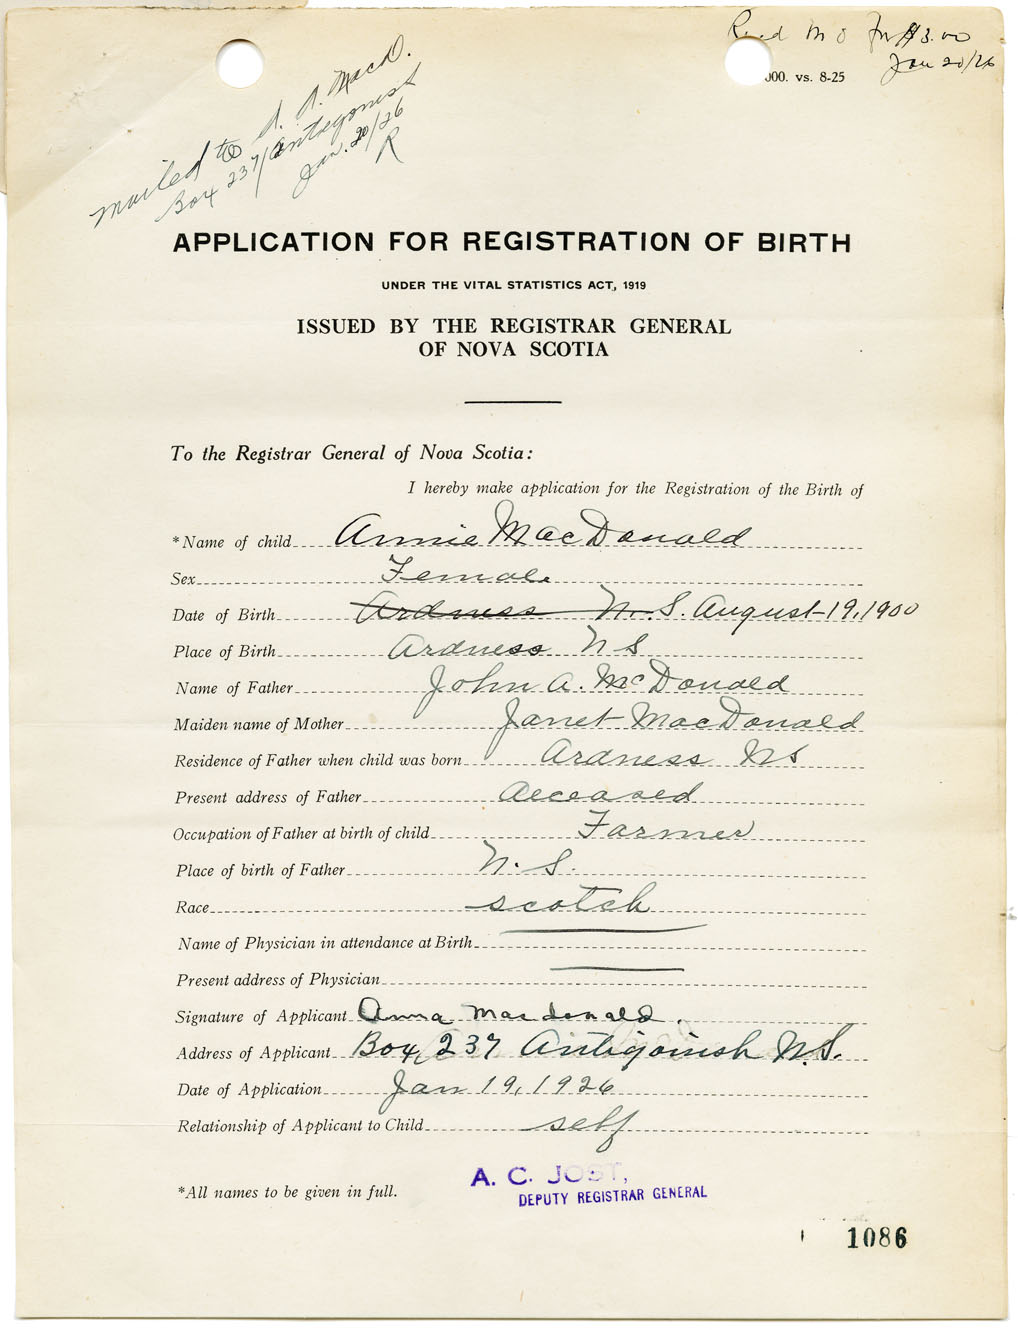 Recd M O for $3.00
Jan 20/26
000. vs. 8-25
mailed to A. A. MacD.
Box 237/Antigonish
Jan. 20/26
R
APPLICATION FOR REGISTRATION OF BIRTH
UNDER THE VITAL STATISTICS ACT, 1919
ISSUED BY THE REGISTRAR GENERAL
OF NOVA SCOTIA
To the Registrar General of Nova Scotia:
I hereby make application for the Registration of the Birth of
*Name of child Annie MacDonald
Sex Female
Date of Birth Ardness N.S. August 19, 1900
Place of Birth Ardness N S
Name of Father John A. McDonald
Maiden name of Mother Janet MacDonald
Residence of Father when child was born Ardness NS
Present address of Father deceased
Occupation of Father at birth of child Farmer
Place of birth of Father N. S.
Race scotch
Name of Physician in attendance at Birth
Present address of Physician
Signature of Applicant Anna Macdonald.
Address of Applicant Box 237 Antigoinish N.S.
Date of Application Jan 19, 1926
Relationship of Applicant to Child self
*All names to be given in full.
A. C. JOST,
DEPUTY REGISTRAR GENERAL
1086